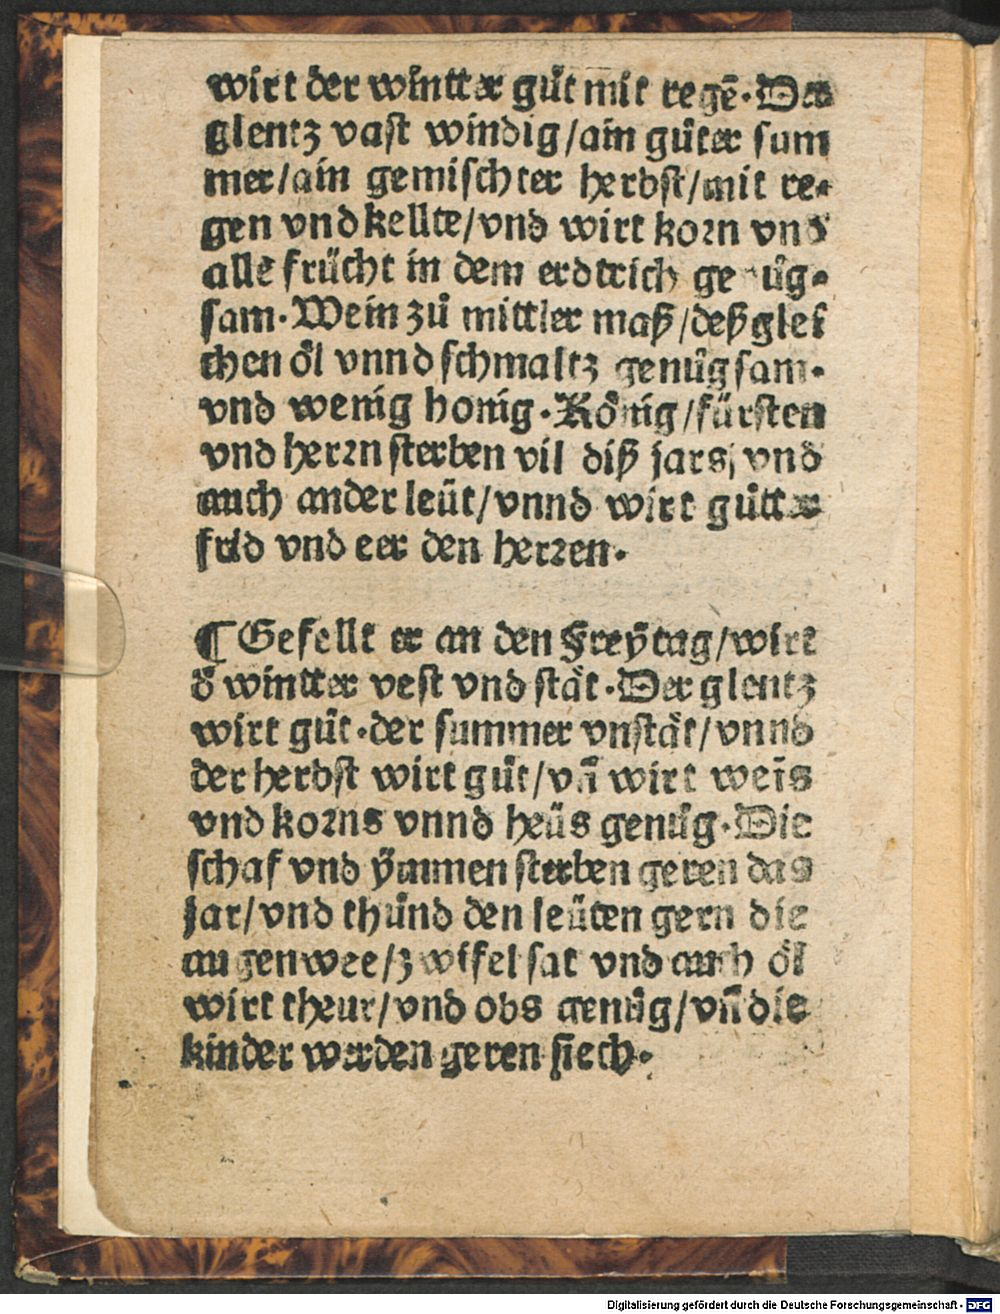 wirt der wintter gůt mit regē. Der
glentz vast windig/ain gůter sum
mer/ain gemischter herbst/mit re-
gen vnd kellte/vnd wirt korn vnd
alle frücht in dem erdtrich genůg-
sam. Wein zů mittler maß/deßglei
chen öl vnnd schmaltz genůgsam.
vnd wenig honig. König/fürsten
vnd herrn sterben vil diß jars/vnd
auch ander leüt/vnnd wirt gůtter
frid vnd eer den herren.
¶ Gefellt er an den Freÿtag/wirt
d̕ wintter vest vnd stät. Der glentz
wirt gůt. der summer vnstät/vnnd
der herbst wirt gůt/vñ wirt weīs
vnd korns vnnd heüs genůg. Die
schaf vnd ÿmmen sterben geren das
jar/vnd thůnd den leüten gern die
augen wee/zwifel sat vnd auch öl
wirt theur/vnd obs genůg/vñ die
kinder werden geren siech.
Digitalisierung gefördert durch die Deutsche Forschungsgemeinschaft - DFG